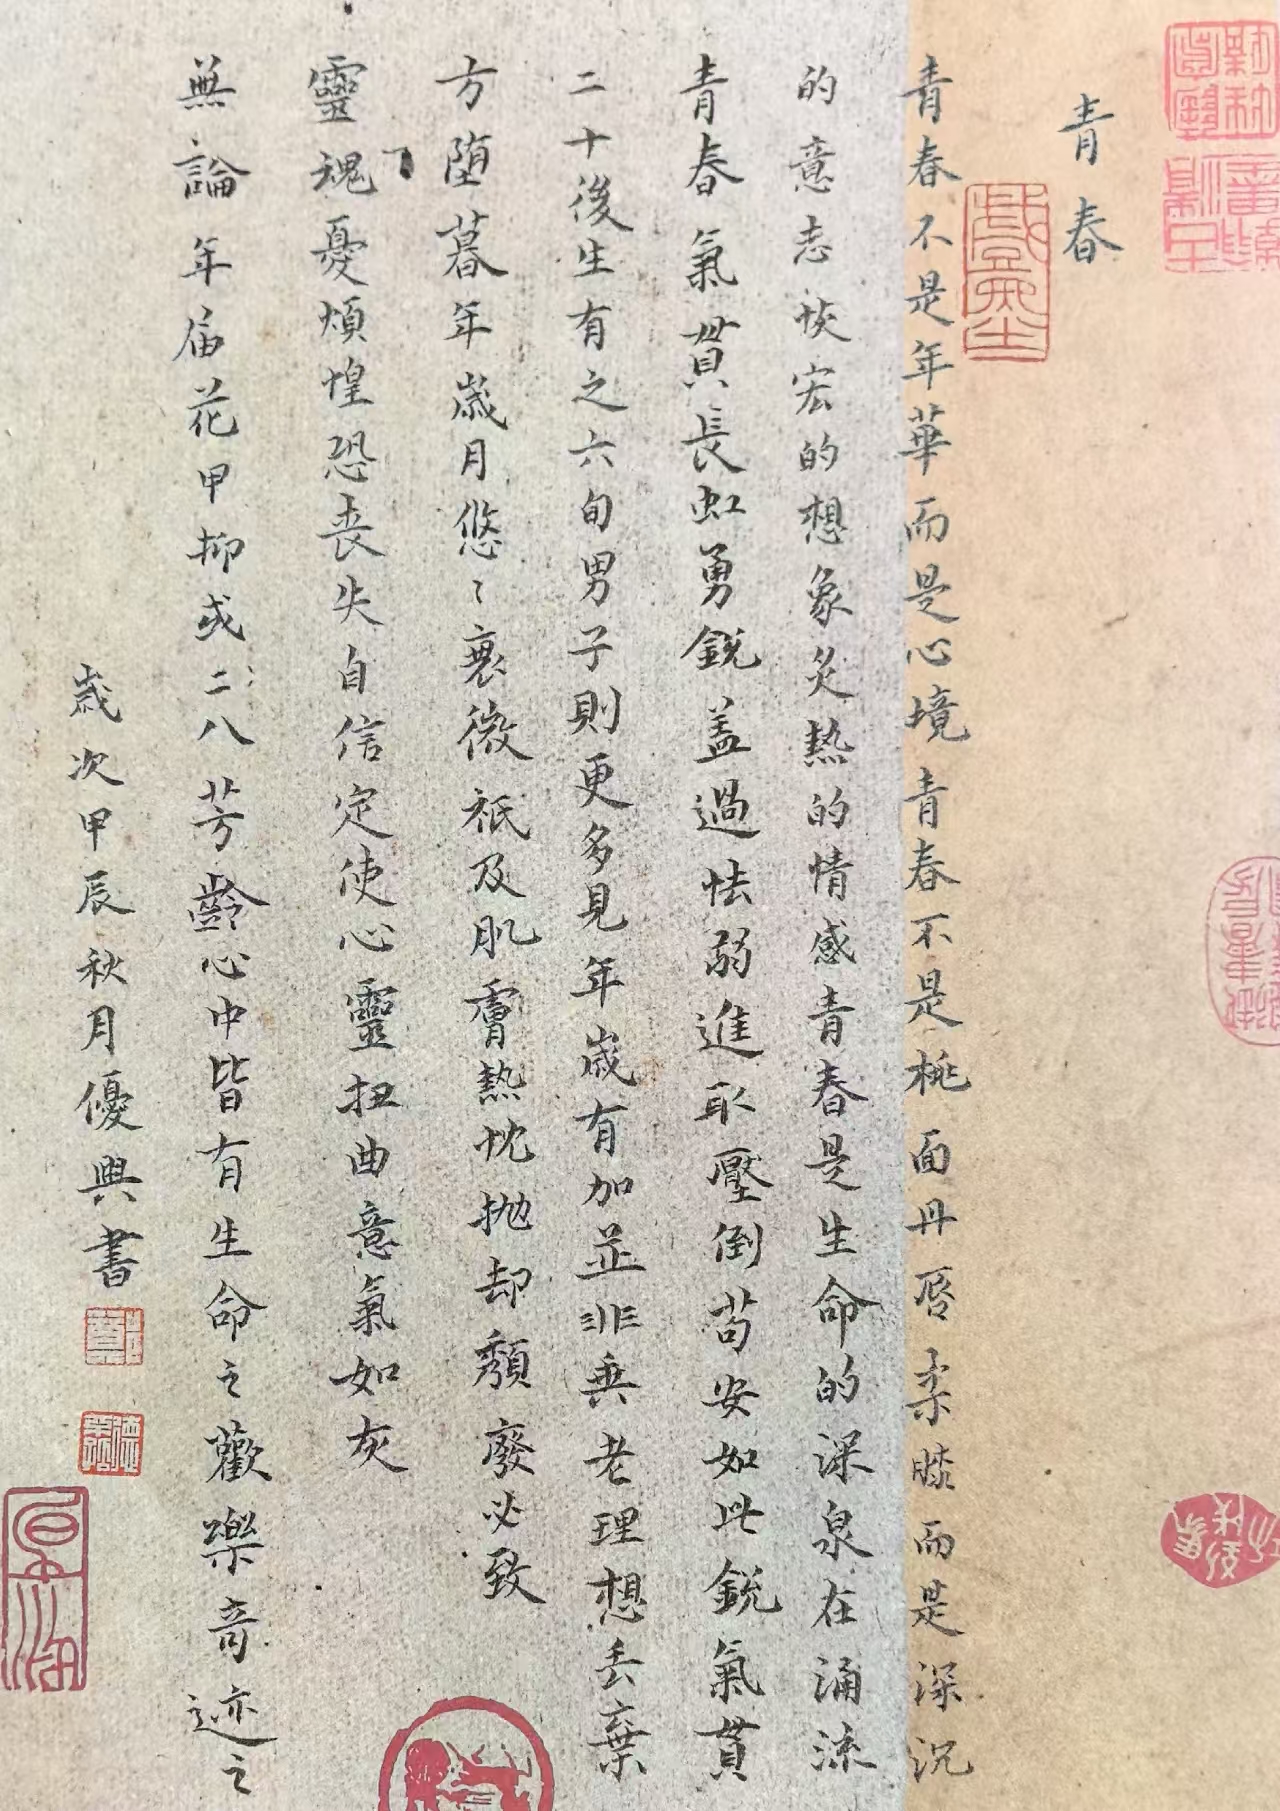 青春
青春不是年華而是心境青春不是桃面丹唇柔膝而是深沉
的意志恢宏的想象炙热的情感青春是生命的深泉在涌流
青春氣貫長虹勇銳盖過怯弱進取壓倒苟安如此銳氣貫
二十後生有之六旬男子則更多見年歲有加並非垂老理想丢棄
方墮暮年歲月悠〻衰微衹及肌膚熱忱抛却頹廢必致
靈魂憂煩惶恐丧失自信定使心靈扭曲意氣如灰
無論年届花甲抑或二八芳齡心中皆有生命之歡樂竒迹之
歲次甲辰秋月優典書